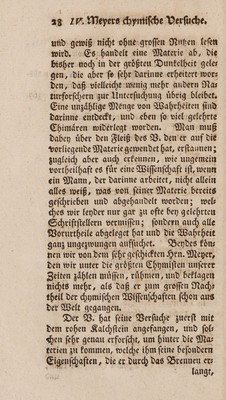 28 IV. Meyers chymische Versuche.
und gewiß nicht ohne grossen Nutzen lesen
wird. Es handelt eine Materie ab, die
bisher noch in der größten Dunkelheit gele-
gen, die aber so sehr darinne erheitert wor-
den, daß vielleicht wenig mehr andern Na-
turforschern zur Untersuchung übrig bleibet.
Eine unzählige Menge von Wahrheiten sind
darinne entdeckt, und eben so viel gelehrte
Chimären widerlegt worden. Man muß
dabey über den Fleiß des V. den er auf die
vorliegende Materie gewendet hat, erstaunen;
zugleich aber auch erkennen, wie ungemein
vortheilhaft es für eine Wissenschaft ist, wenn
ein Mann, der darinne arbeitet, nicht allein
alles weiß, was von seiner Materie bereits
geschrieben und abgehandelt worden; wel-
ches wir leyder nur gar zu ofte bey gelehrten
Schriftstellern vermissen; sondern auch alle
Vorurtheile abgeleget hat und die Wahrheit
ganz ungezwungen aufsuchet. Beydes kön-
nen wir von dem sehr geschickten Hrn. Meyer,
den wir unter die größten Chymisten unserer
Zeiten zählen müssen, rühmen, und beklagen
nichts mehr, als daß er zum grossen Nach-
theil der chymischen Wissenschaften schon aus
der Welt gegangen.
Der V. hat seine Versuche zuerst mit
dem rohen Kalchstein angefangen, und sol-
chen sehr genau erforscht, um hinter die Ma-
terien zu kommen, welche ihm seine besondern
Eigenschaften, die er durch das Brennen er-
langt,